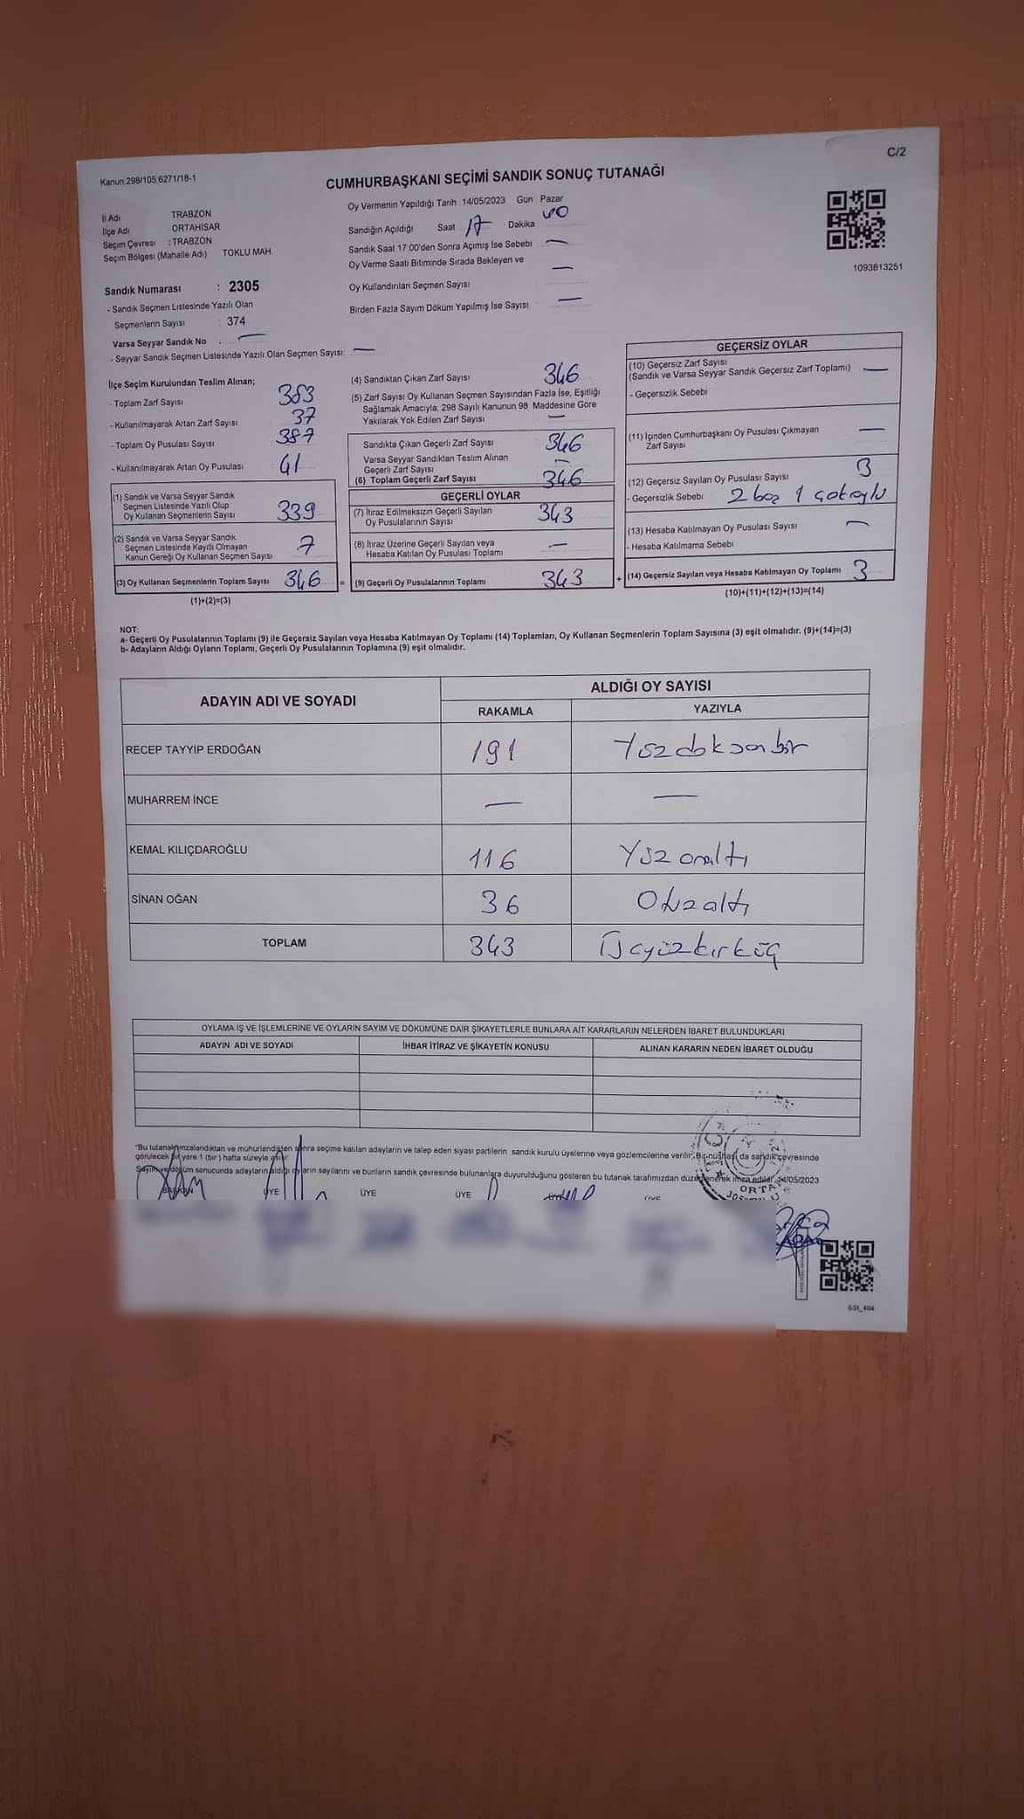 C/2
Kanun 298/105,6271/18-1
CUMHURBAŞKANI SEÇİMİ SANDIK SONUÇ TUTANAĞI
İl Adı TRABZON
İlçe Adı ORTAHİSAR
Seçim Çevresi : TRABZON
Seçim Bölgesi (Mahalle Adı) TOKLU MAH
Sandık Numarası : 2305
- Sandık Seçmen Listesinde Yazılı Olan
Seçmenlerin Sayısı : 374
Varsa Seyyar Sandık No : —
- Seyyar Sandık Seçmen Listesinde Yazılı Olan Seçmen Sayısı: —
Oy Vermenin Yapıldığı Tarih : 14/05/2023 Gün Pazar
Sandığın Açıldığı Saat 17 Dakika 00
Sandık Saat 17:00'den Sonra Açımış İse Sebebi —
Oy Verme Saati Bitiminde Sırada Bekleyen ve —
Oy Kullandırılan Seçmen Sayısı
Birden Fazla Sayım Döküm Yapılmış İse Sayısı —
1093613251
İlçe Seçim Kurulundan Teslim Alınan;
- Toplam Zarf Sayısı 383
- Kullanılmayarak Artan Zarf Sayısı 37
- Toplam Oy Pusulası Sayısı 387
- Kullanılmayarak Artan Oy Pusulası 41
(1) Sandık ve Varsa Seyyar Sandık
Seçmen Listesinde Yazılı Olup
Oy Kullanan Seçmenlerin Sayısı 339
(2) Sandık ve Varsa Seyyar Sandık
Seçmen Listesinde Kayıtlı Olmayan
Kanun Gereği Oy Kullanan Seçmen Sayısı 7
(3) Oy Kullanan Seçmenlerin Toplam Sayısı 346 =
(1)+(2)=(3)
(4) Sandıktan Çıkan Zarf Sayısı 346
(5) Zarf Sayısı Oy Kullanan Seçmen Sayısından Fazla İse, Eşitliği
Sağlamak Amacıyla, 298 Sayılı Kanunun 98. Maddesine Göre
Yakılarak Yok Edilen Zarf Sayısı —
Sandıkta Çıkan Geçerli Zarf Sayısı 346
Varsa Seyyar Sandıktan Teslim Alınan
Geçerli Zarf Sayısı —
(6) Toplam Geçerli Zarf Sayısı 346
GEÇERLİ OYLAR
(7) İtiraz Edilmeksizin Geçerli Sayılan
Oy Pusulalarının Sayısı 343
(8) İtiraz Üzerine Geçerli Sayılan veya
Hesaba Katılan Oy Pusulası Toplamı —
(9) Geçerli Oy Pusulalarının Toplamı 343 +
GEÇERSİZ OYLAR
(10) Geçersiz Zarf Sayısı
(Sandık ve Varsa Seyyar Sandık Geçersiz Zarf Toplamı) —
- Geçersizlik Sebebi
(11) İçinden Cumhurbaşkanı Oy Pusulası Çıkmayan —
Zarf Sayısı
(12) Geçersiz Sayılan Oy Pusulası Sayısı 3
- Geçersizlik Sebebi 2 boş 1
(13) Hesaba Katılmayan Oy Pusulası Sayısı —
- Hesaba Katılmama Sebebi
(14) Geçersiz Sayılan veya Hesaba Katılmayan Oy Toplamı 3
(10)+(11)+(12)+(13)=(14)
NOT:
a- Geçerli Oy Pusulalarının Toplamı (9) ile Geçersiz Sayılan veya Hesaba Katılmayan Oy Toplamı (14) Toplamları, Oy Kullanan Seçmenlerin Toplam Sayısına (3) eşit olmalıdır. (9)+(14)=(3)
b- Adayların Aldığı Oyların Toplamı, Geçerli Oy Pusulalarının Toplamına (9) eşit olmalıdır.
ADAYIN ADI VE SOYADI ALDIĞI OY SAYISI
RAKAMLA YAZIYLA
RECEP TAYYİP ERDOĞAN 191 Yüzdoksanbir
MUHARREM İNCE — —
KEMAL KILIÇDAROĞLU 116 Yüzonaltı
SİNAN OĞAN 36 Otuzaltı
TOPLAM 343 Üçyüzkırküç
OYLAMA İŞ VE İŞLEMLERİNE VE OYLARIN SAYIM VE DÖKÜMÜNE DAİR ŞİKAYETLERLE BUNLARA AİT KARARLARIN NELERDEN İBARET BULUNDUKLARI
ADAYIN ADI VE SOYADI İHBAR İTİRAZ VE ŞİKAYETİN KONUSU ALINAN KARARIN NEDEN İBARET OLDUĞU
"Bu tutanak imzalandıktan ve mühürlendikten sonra seçime katılan adayların ve talep eden siyasi partilerin sandık kurulu üyelerine veya gözlemcilerine verilir. Bir nüshası da sandık çevresinde
görülecek bir yere 1 (bir) hafta süreyle asılır
Sayım ve döküm sonucunda adayların aldığı oyların sayılarını ve bunların sandık çevresinde bulunanlara duyurulduğunu gösteren bu tutanak tarafımızdan düzenlenerek imza edildi. 14/05/2023
ÜYE ÜYE ÜYE